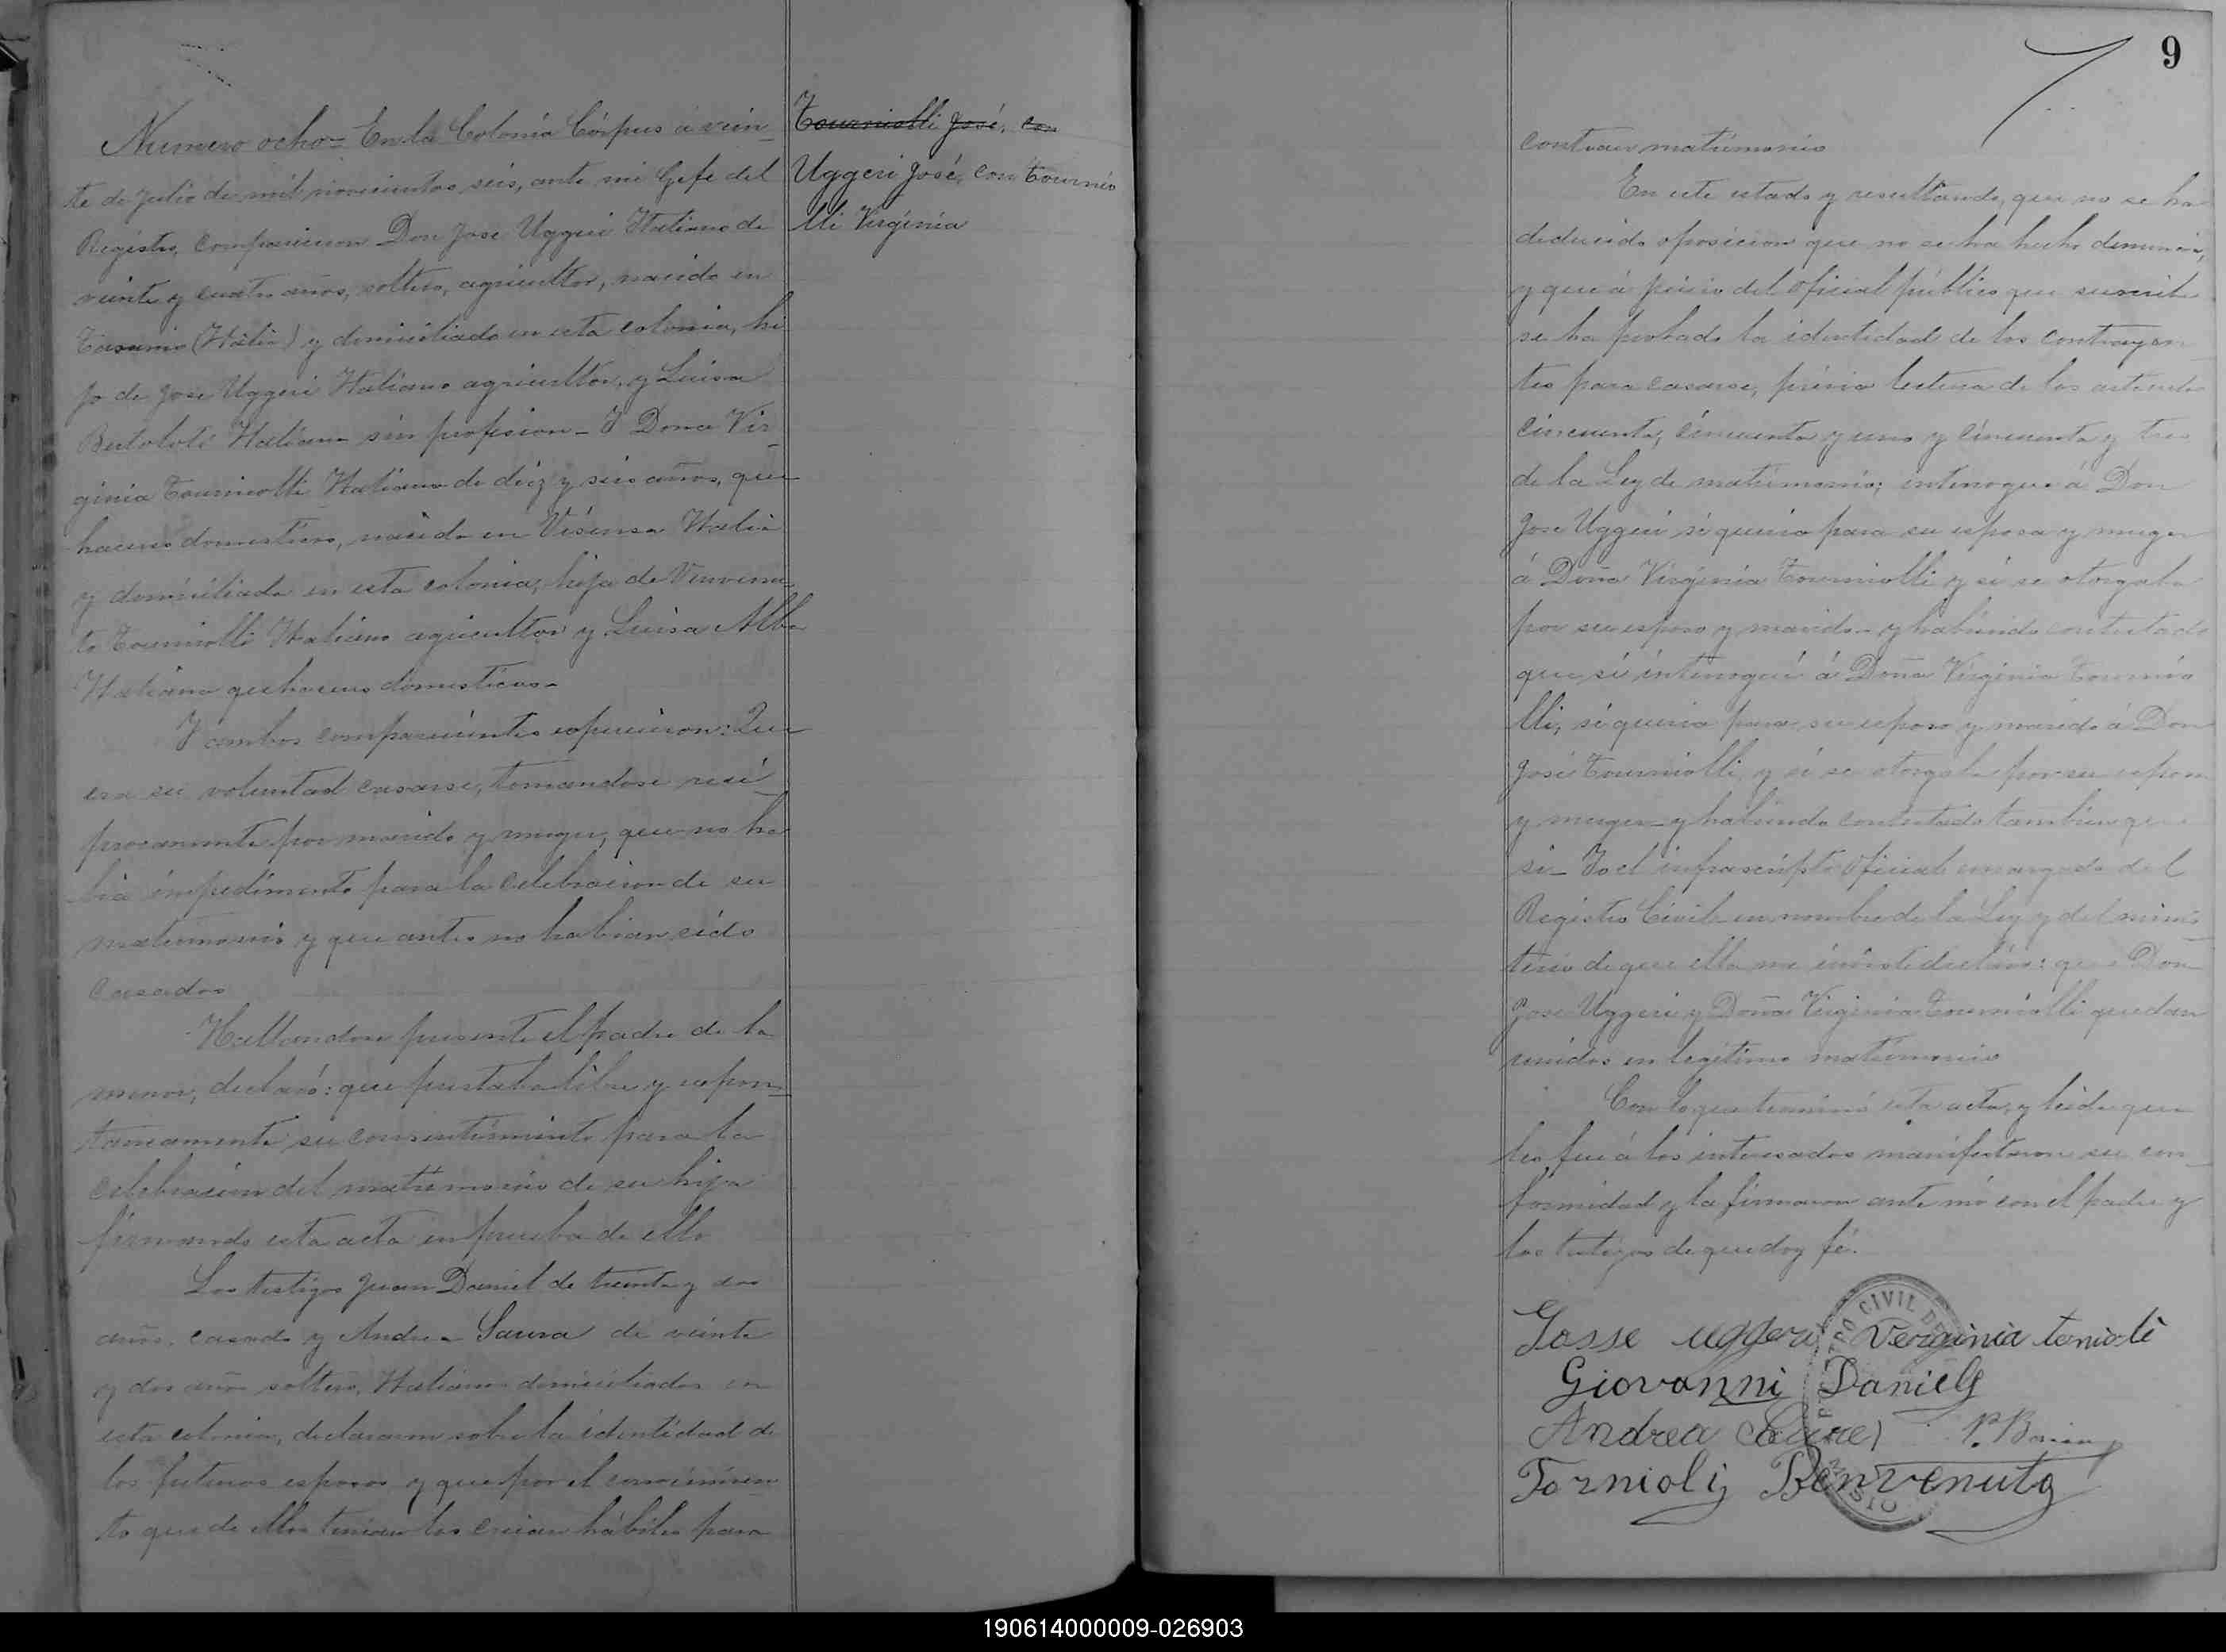 Numero ocho = En la Colonia Córpus á vein-
te de Julio de mil novecientos seis, ante mi Gefe del
Registro, comparecieron Don Jose Uggeri Italiano de
veinte y cuatro años, soltero, agricultor, nacido en
(Italia) y domiciliado en esta colonia, hi
jo de Jose Uggeri Italiano agricultor, y Luisa
Bertoloti Italiana sin profesion - Y Dona Vir-
ginia Tourniolli Italiana de diez y seis años, que-
haceres domesticos, nacida en Visensa Italia
y domiciliada en esta colonia, hija de Venvenu-
to Tourniolli Italiano agricultor y Luisa Alba
Italiana quehaceres domesticos-
Y ambos comparecientes espusieron: Que
era su voluntad casarse, tomandose reci-
procamente por marido y muger, que no ha
bia impedimento para la celebracion de su
matrimonio y que antes no habian sido
casados
Hallandose presente el padre de la
menor, declaró: que prestaba libre y espon-
taneamente su consentimiento para la
celebracion del matrimonio de su hija
firmando esta acta en prueba de ello
Los testigos Juan Daniel de treinta y dos
años, casado y Andrea Saura de veinte
y dos años soltero, Italianos domiciliados en
esta colonia, declararon sobre la identidad de
los futuros esposos y que por el conocimien-
to que de ellos tenian los creian hábiles para
Tourniolli José, con
Uggeri José, con Tournio
lli Virginia
9
contraer matrimonio
En este estado y resultando, que no se ha
deducido oposicion que no se ha hecho denuncia,
y que á juicio del oficial público que suscribe
se ha probado la identidad de los contrayen-
tes para casarse, prévia lectura de los articulos
cincuenta, cincuenta y uno y cincuenta y tres
de la Ley de matrimonio; interrogue á Don
Jose Uggeri si queria para su esposa y muger
á Doña Virginia Tourniolli y si se otorgaba
por su esposo y marido - y habiendo contestado
que si interrogué á Doña Virginia Tournio
lli, si queria para su esposo y marido á Don
José Tourniolli, y si se otorgaba por su esposa
y muger - y habiendo contestado tambien que
si - Yo el infrascripto Oficial encargado del
Registro Civil en nombre de la Ley y del minis-
terio de que ella me inviste declaro: que Don
Jose Uggeri y Doña Virginia Tourniolli quedan
unidos en legitimo matrimonio
Con lo que terminó esta acta, y leida que
les fue á los interesados manifestaron su con-
formidad y la firmaron ante mi con el padre y
los testigos de que doy fé.
Josse uggeri Verginia tornioli
Giovanni Daniely
Andrea
Tornioli Benvenuto
REGISTRO CIVIL DE
MISIO
190614000009-026903